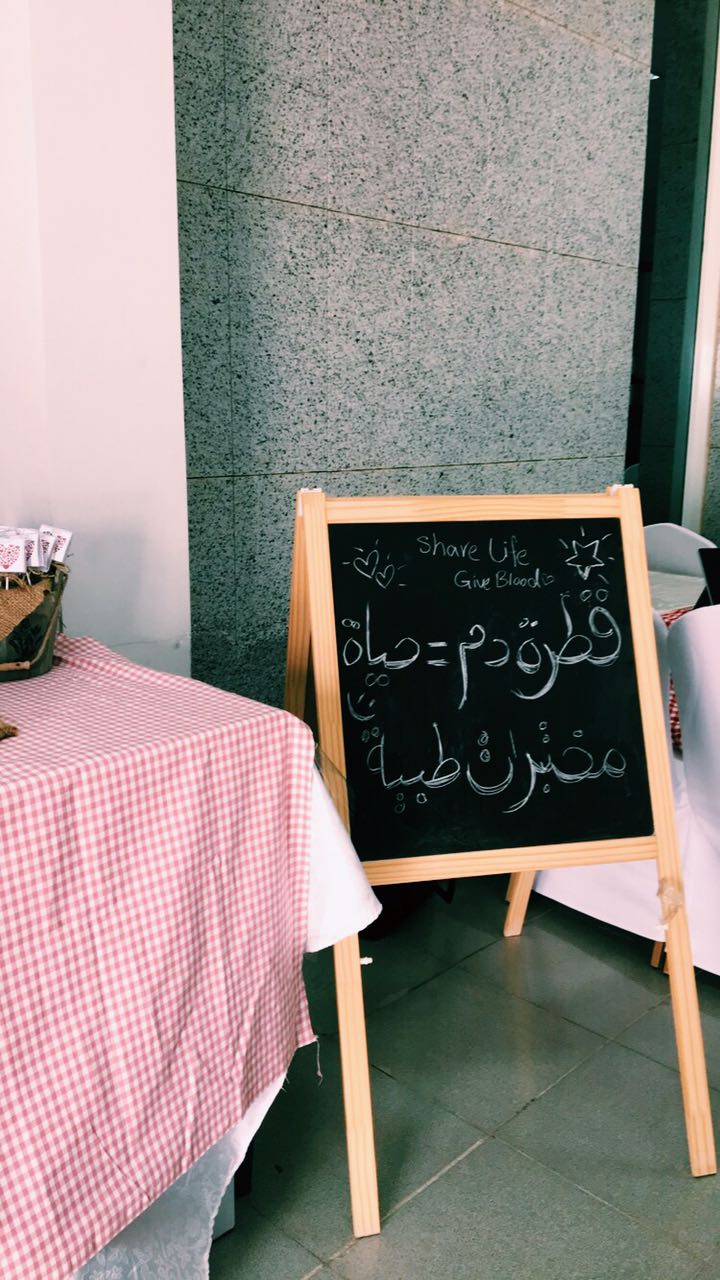 Share Life
Give Blood
قطرة دم = حياة
مختبرات طبية